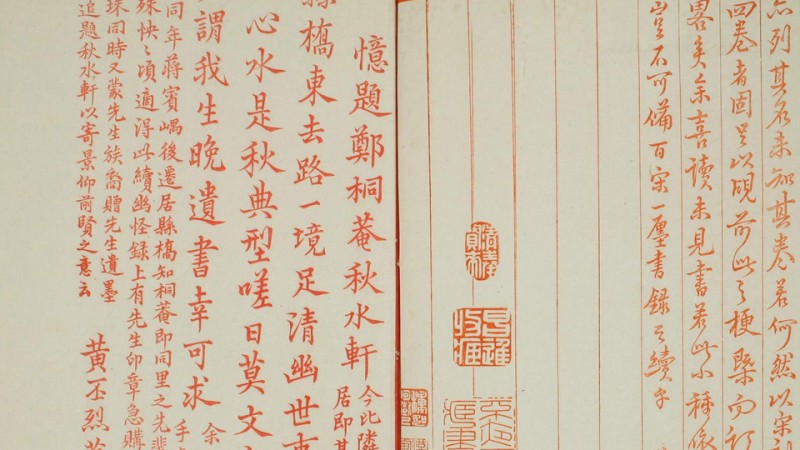 亦列其名未知其卷若何然以宋刻
四卷者固足以覘前此之梗槩而
畧矣余喜讀未見書若此小種
豈不可備百宋一廛書錄之續乎
憶題鄭桐菴秋水軒
今比隣
居即其
橋東去路一境足清幽世
心水是秋典型嗟日莫文
謂我生晚遺書幸可求
余
手
同年蔣賓嵎後遷居縣橋知桐菴即同里之先輩
殊怏怏頃適得此續幽怪錄上有先生印章急購
珠同時又蒙先生族裔贈先生遺墨
追題秋水軒以寄景仰前賢之意云
黃丕烈